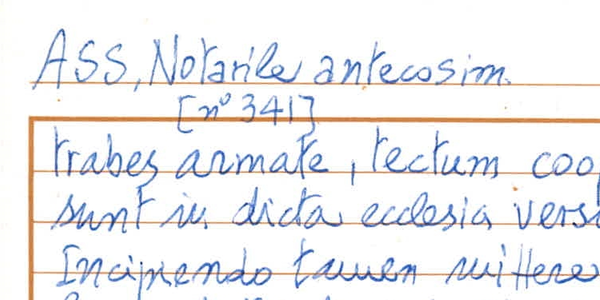 ASS, Notarile antecosim.
[n° 341]
trabes armate, tectum coo
sunt in dicta ecclesia vers
Incipiendo tamen mittere